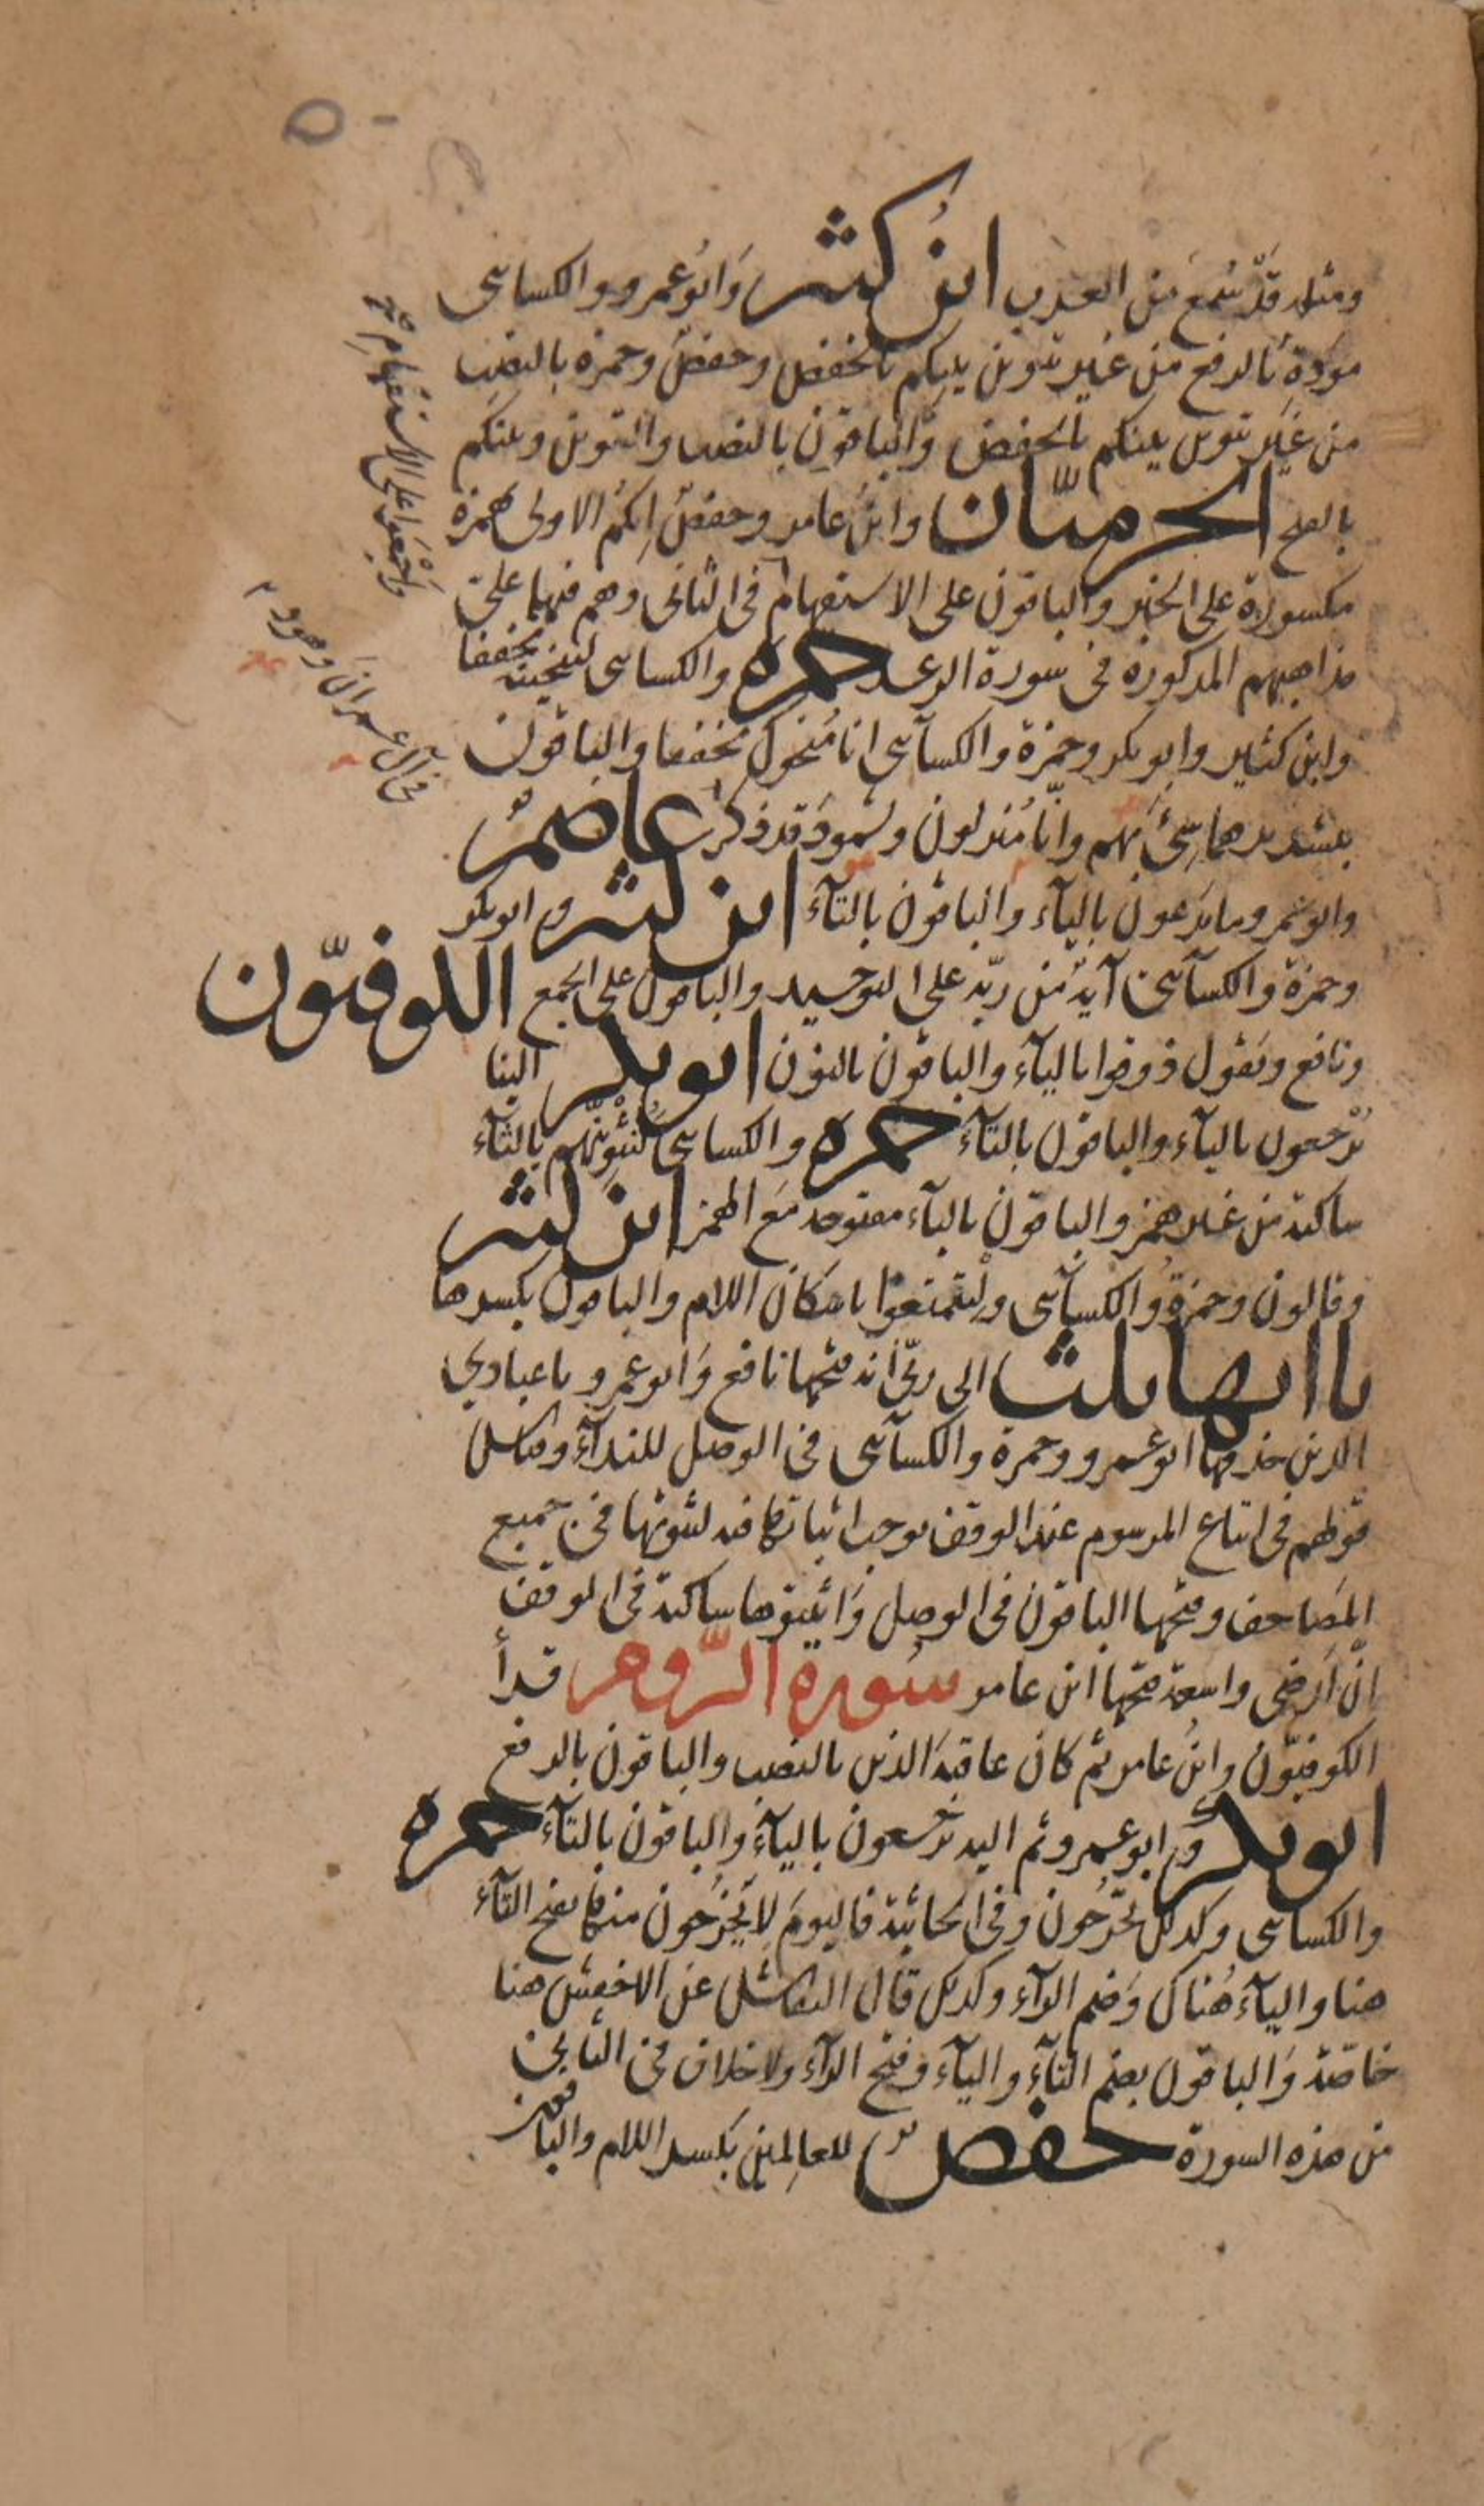 ومثله قد سُمع من العرب ابن كثير وَابُو عمرو والكسائى
مودةُ بالرفع من غير تنوين بينِكم بالخفض وحفصٌ وحمزه بالنصب
من غير تنوين بينكم بالخفض وَالباقون بالنصب والتنوين وبينكم
بالفتح الحرميّان وابنُ عامر وحفصٌ اِنكم الاولى بهمزة
مكسورة على الخبر والباقون على الاستفهام واجْمَعوا على الاستفهامِ فى الثانى وهم فيهما على
مذاهبهم المذكورة فى سورة الرعد حمزة والكسائى لننجينه مخففا
وابن كثير وابو بكر وحمزة والكسآئى انا مُنجوك مخففا والباقون
بتشديدهما سِئَ بهم وانّا مُنزلون وثمودَ قد ذكر عاصمٌ
فى آل عمران وهود
وابو عمرو ما يدعون باليآء والباقون بالتآء ابن كثير وابو بكر
وحمزة والكسآئى آيةٌ من ربّه على التوحيد والباقون على الجمع الكوفيّون
ونافع ويقول ذوقوا باليآء والباقون بالنون ابو بكر الينا
يُرْجعون باليآء والباقون بالتآء حمزه والكسائى لنُثْوِينّهم بالثآء
ساكنة من غير همز والباقون بالبآء مفتوحه مَع الهمز ابن كثير
وقالون وحمزةُ والكسآئى ولْيتمتعوا باسكان اللام والباقون بكسرها
ياآتها ثلث الى ربّى انه فتحها نافع وَابو عمرو يا عبادي
الذين حذفها ابو عمرو وحمزة والكسآئى فى الوصل للندآء وقياسُ
قولهم فى اتباع المرسوم عند الوقف يوجب اثباتها فيه لثبوتها فى جميع
المصَاحف وفتحها الباقون فى الوصل وَاثبتوها ساكنة فى الوقف
انّ اَرضى واسعة فتحها ابن عامر سورة الرّوم قرأ
الكوفيّون وابنُ عامر ثم كان عاقبةَ الذين بالنصب والباقون بالرفع
ابو بكر وابو عمرو ثم اليه يُرجعون باليآء والباقون بالتآء حمزه
والكسائى وكذلك تَخْرُجون وفى الجاثية فاليومَ لا يَخْرُجون منها بفتح التآء
هنا واليآء هُناك وَضم الرآء وكذلك قال النقاش عن الاخفش هنا
خاصّة وَالباقون بضم التآء واليآء وفتح الرآء ولا خلاف فى الثانى
من هذه السورة حفصٌ للعالِمين بكسر اللام والباقون